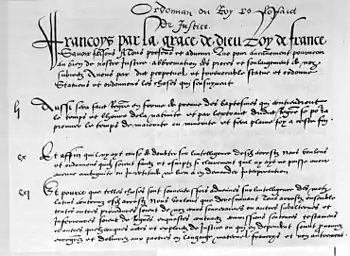 du Roy le faict
De Justice.
Francoys par la grace de dieu Roy de france
Scavoir faisons A tous presens et advenir Que pour aucunement pourveoir
au bien de nostre Justice abbreviation des proces et soulaigement de noz
subgectz Avons par edit perpetuel et irrevocable statue et ordonne
Statuons et ordonnons les choses qui sensuyvent
lj Aussi sera faict en forme de preuve des baptesmes qui contiendront
le temps et lheure de la nativite et par lextraict dudict se porra
prouver le temps de majorite ou minorite et fera plaine foy a ceste fin
cx Et affin quil ny ayt cause de doubter sur lintelligence desd arrestz Nous voulons et
ordonnons quilz soient faictz et escriptz si clerement quil ny ayt ne puisse avoir
aucune ambiguite ou incertitude ne lieu a en demander interpretation
cxi Et pource que telles choses sont souventesfois advenues sur lintelligence des motz
latins contenuz esd arrestz Nous voulons que doresnavant Tous arrestz ensemble
toutes autres procedures soient de noz cours souveraines ou autres subalternes et
inferieures soient de enquestes contractz commissions sentences testamens
et autres quelzconques actes et exploictz de Justice ou qui en dependent soient
et delivrez aux parties en langage maternel francoys et non autrement